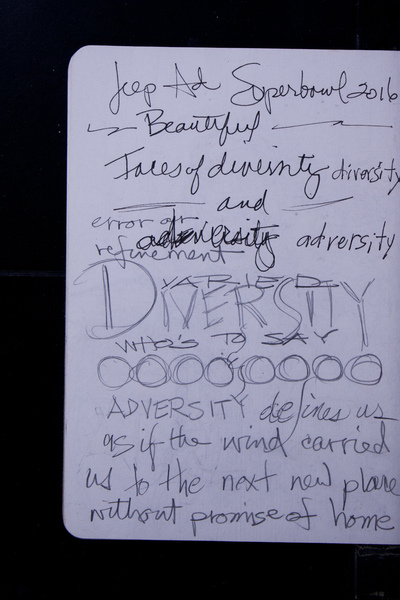 Jeep Ad Superbowl 2016
Beautiful
Faces of diversity diversity
and
error or
adversity adversity
refinement
VARIED
DIVERSITY
WHO'S TO SAY
ADVERSITY defines us
as if the wind carried
us to the next new place
without promise of home